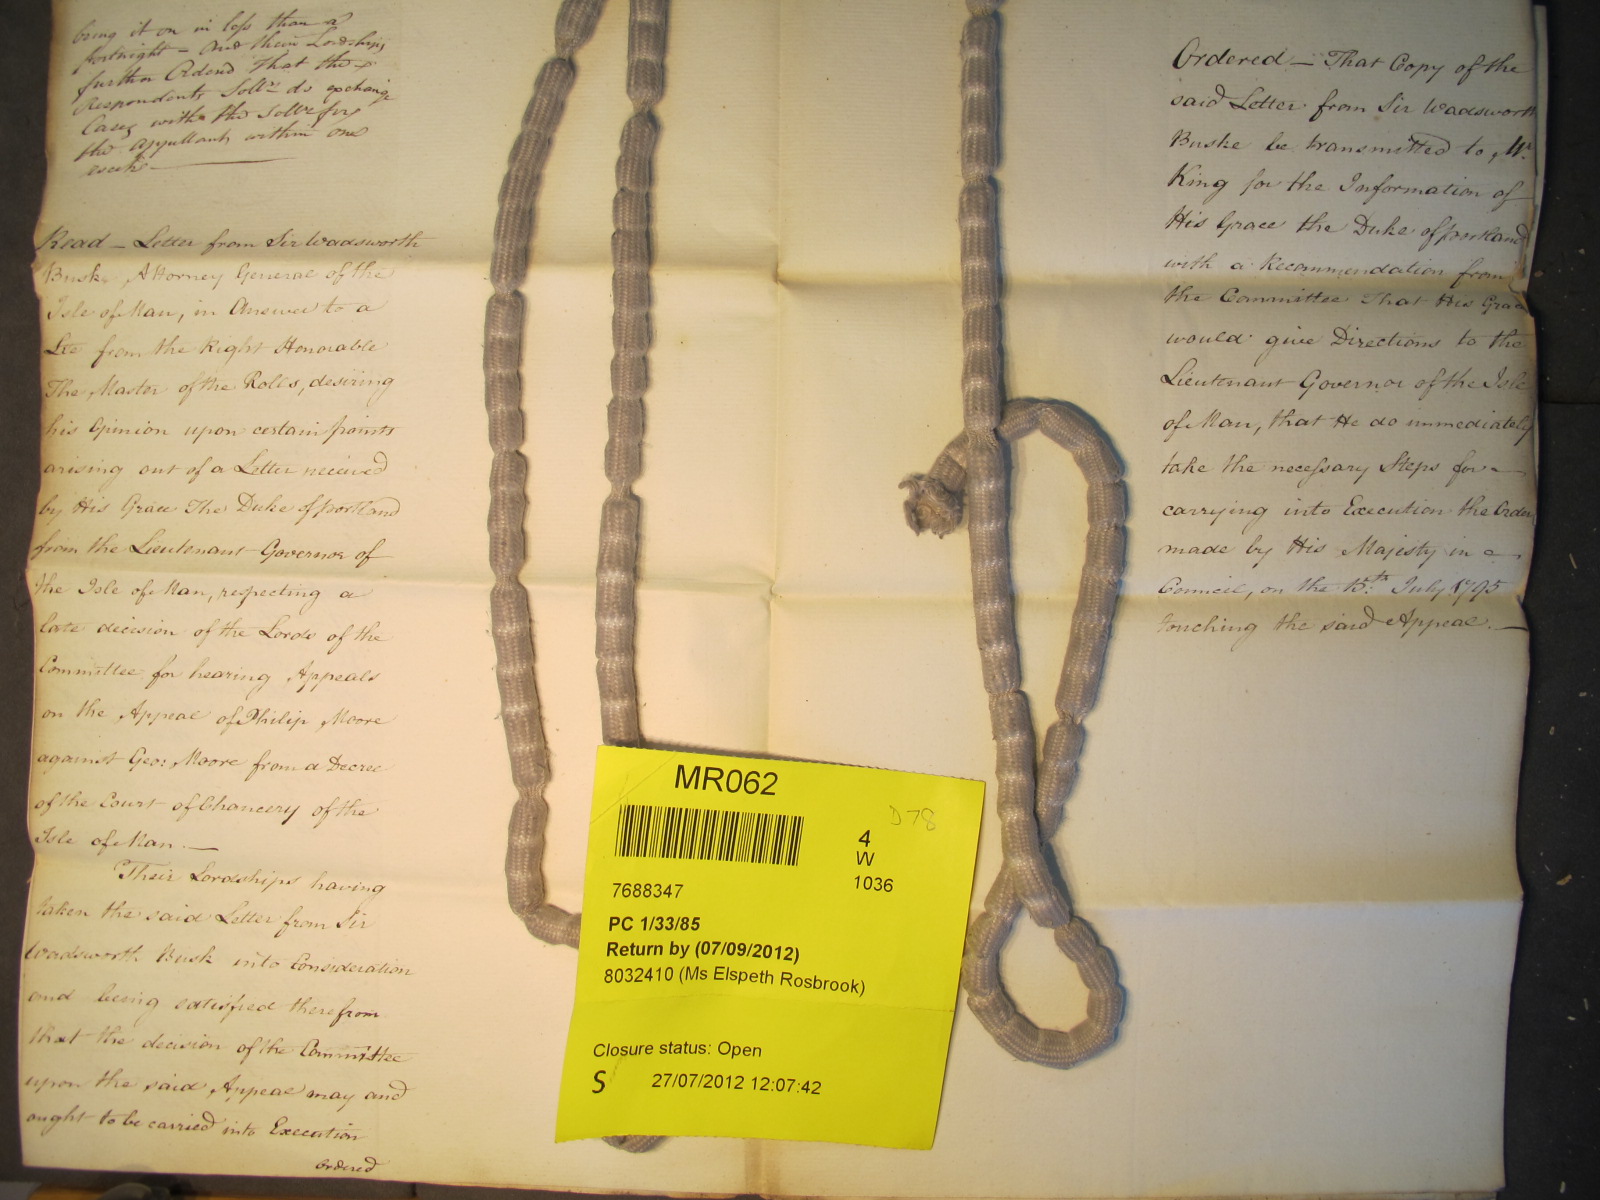 bring it on in less than a
fortnight — And their Lordships
further Ordered That the
Respondents Sollr. do exchange
Cases with the Sollr. for
the Appellants within one
week —
Read — Letter from Sir Wadsworth
Busk, Attorney General of the
Isle of Man, in Answer to a
Lre from the Right Honorable
The Master of the Rolls, desiring
his Opinion upon certain points
arising out of a Letter received
by His Grace The Duke of Portland
from the Lieutenant Governor of
the Isle of Man, respecting a
late decision of the Lords of the
Committee for hearing Appeals
on the Appeal of Philip Moore
against Geo: Moore from a Decree
of the Court of Chancery of the
Isle of Man. —
Their Lordships having
taken the said Letter from Sir
Wadsworth Busk into Consideration
and being satisfied therefrom
that the decision of the Committee
upon the said Appeal may and
ought to be carried into Execution
ordered
Ordered — That Copy of the
said Letter from Sir Wadsworth
Buske be transmitted to Mr.
King for the Information of
His Grace the Duke of Portland
with a Recommendation from
the Committee That His Grace
would give Directions to the
Lieutenant Governor of the Isle
of Man, that He do immediately
take the necessary Steps for —
carrying into Execution the Order
made by His Majesty in —
Council, on the 15th. July 1795
touching the said Appeal. —
MR062
D78
4
W
1036
7688347
PC 1/33/85
Return by (07/09/2012)
8032410 (Ms Elspeth Rosbrook)
Closure status: Open
S 27/07/2012 12:07:42